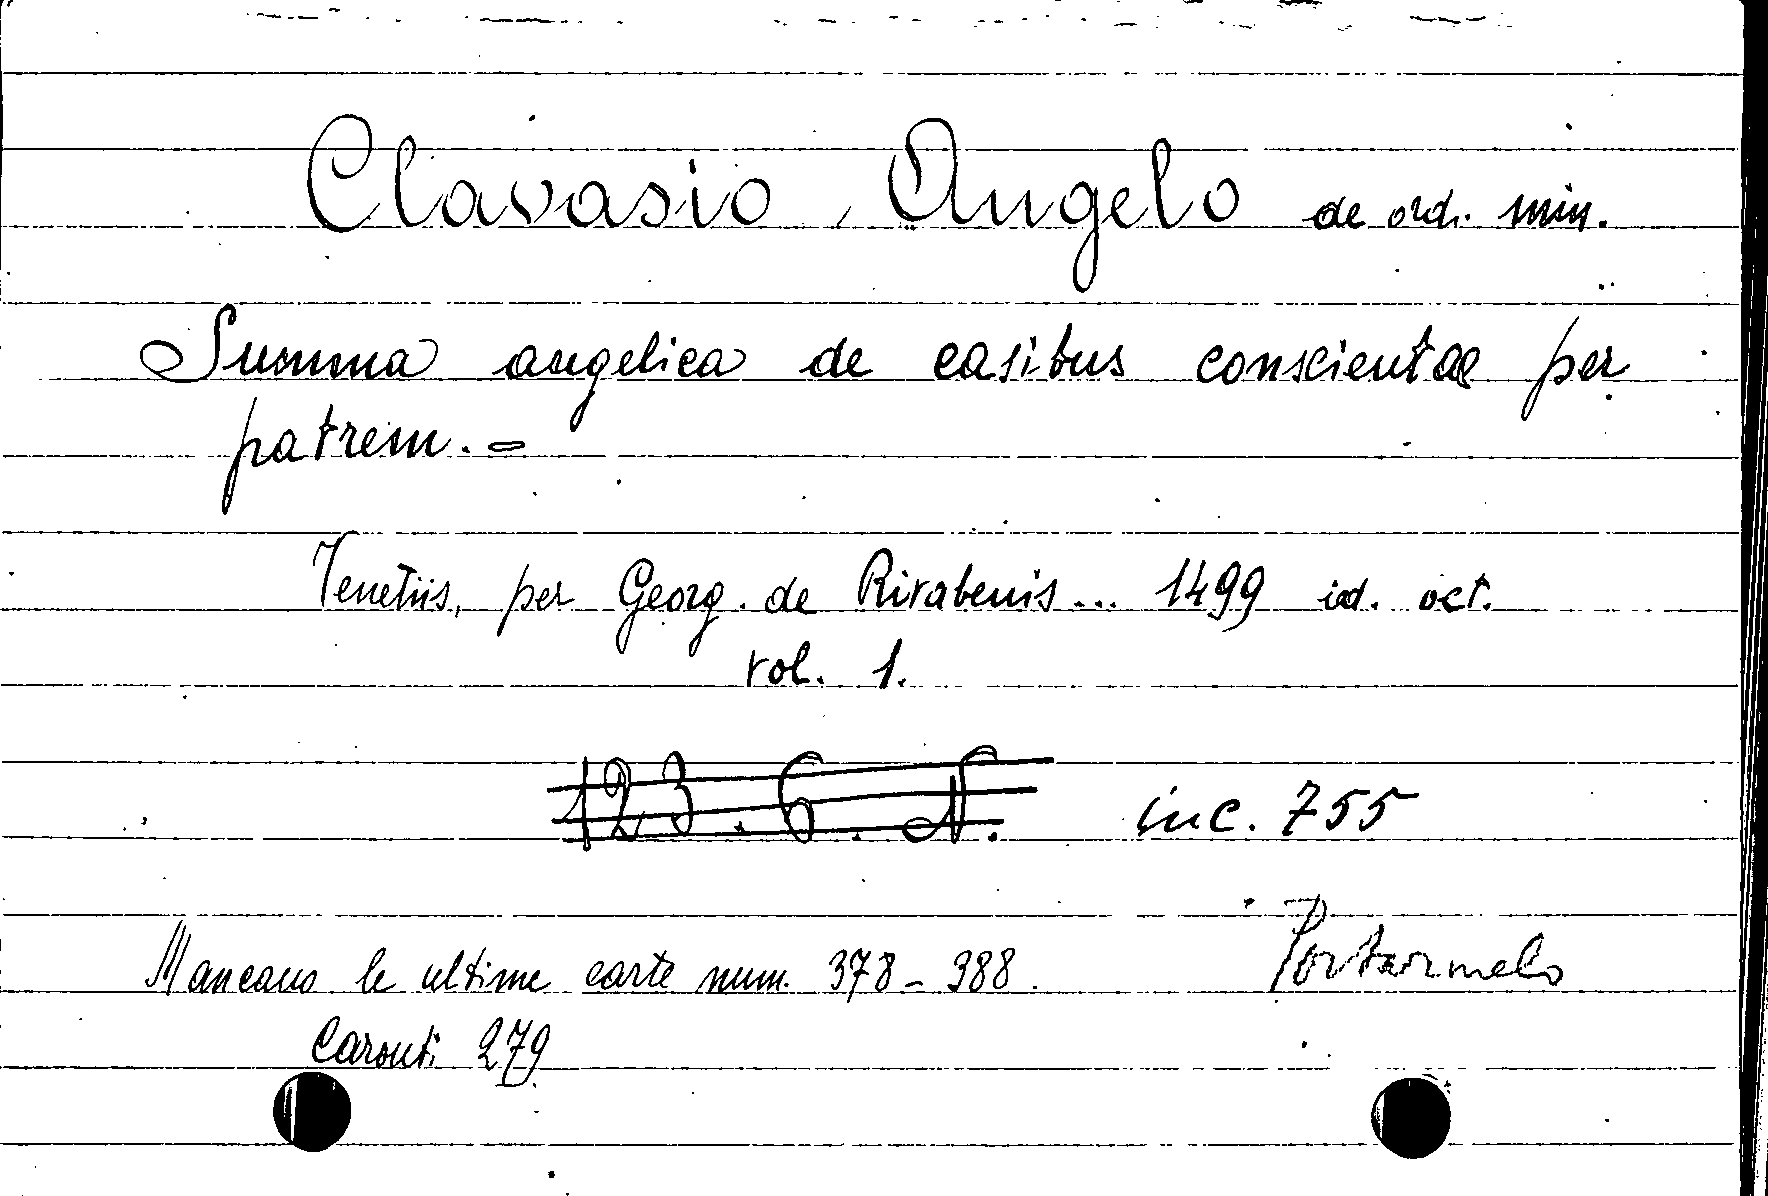 Clavasio, Angelo de ord. min.
Summa angelica de casibus conscientae per
patrem. =
Venetiis, per Georg. de Rivabenis... 1499 id. oct.
vol. 1.
123. 6. N. inc. 755
Mancano le ultime carte num. 378-388.
Caronti 279